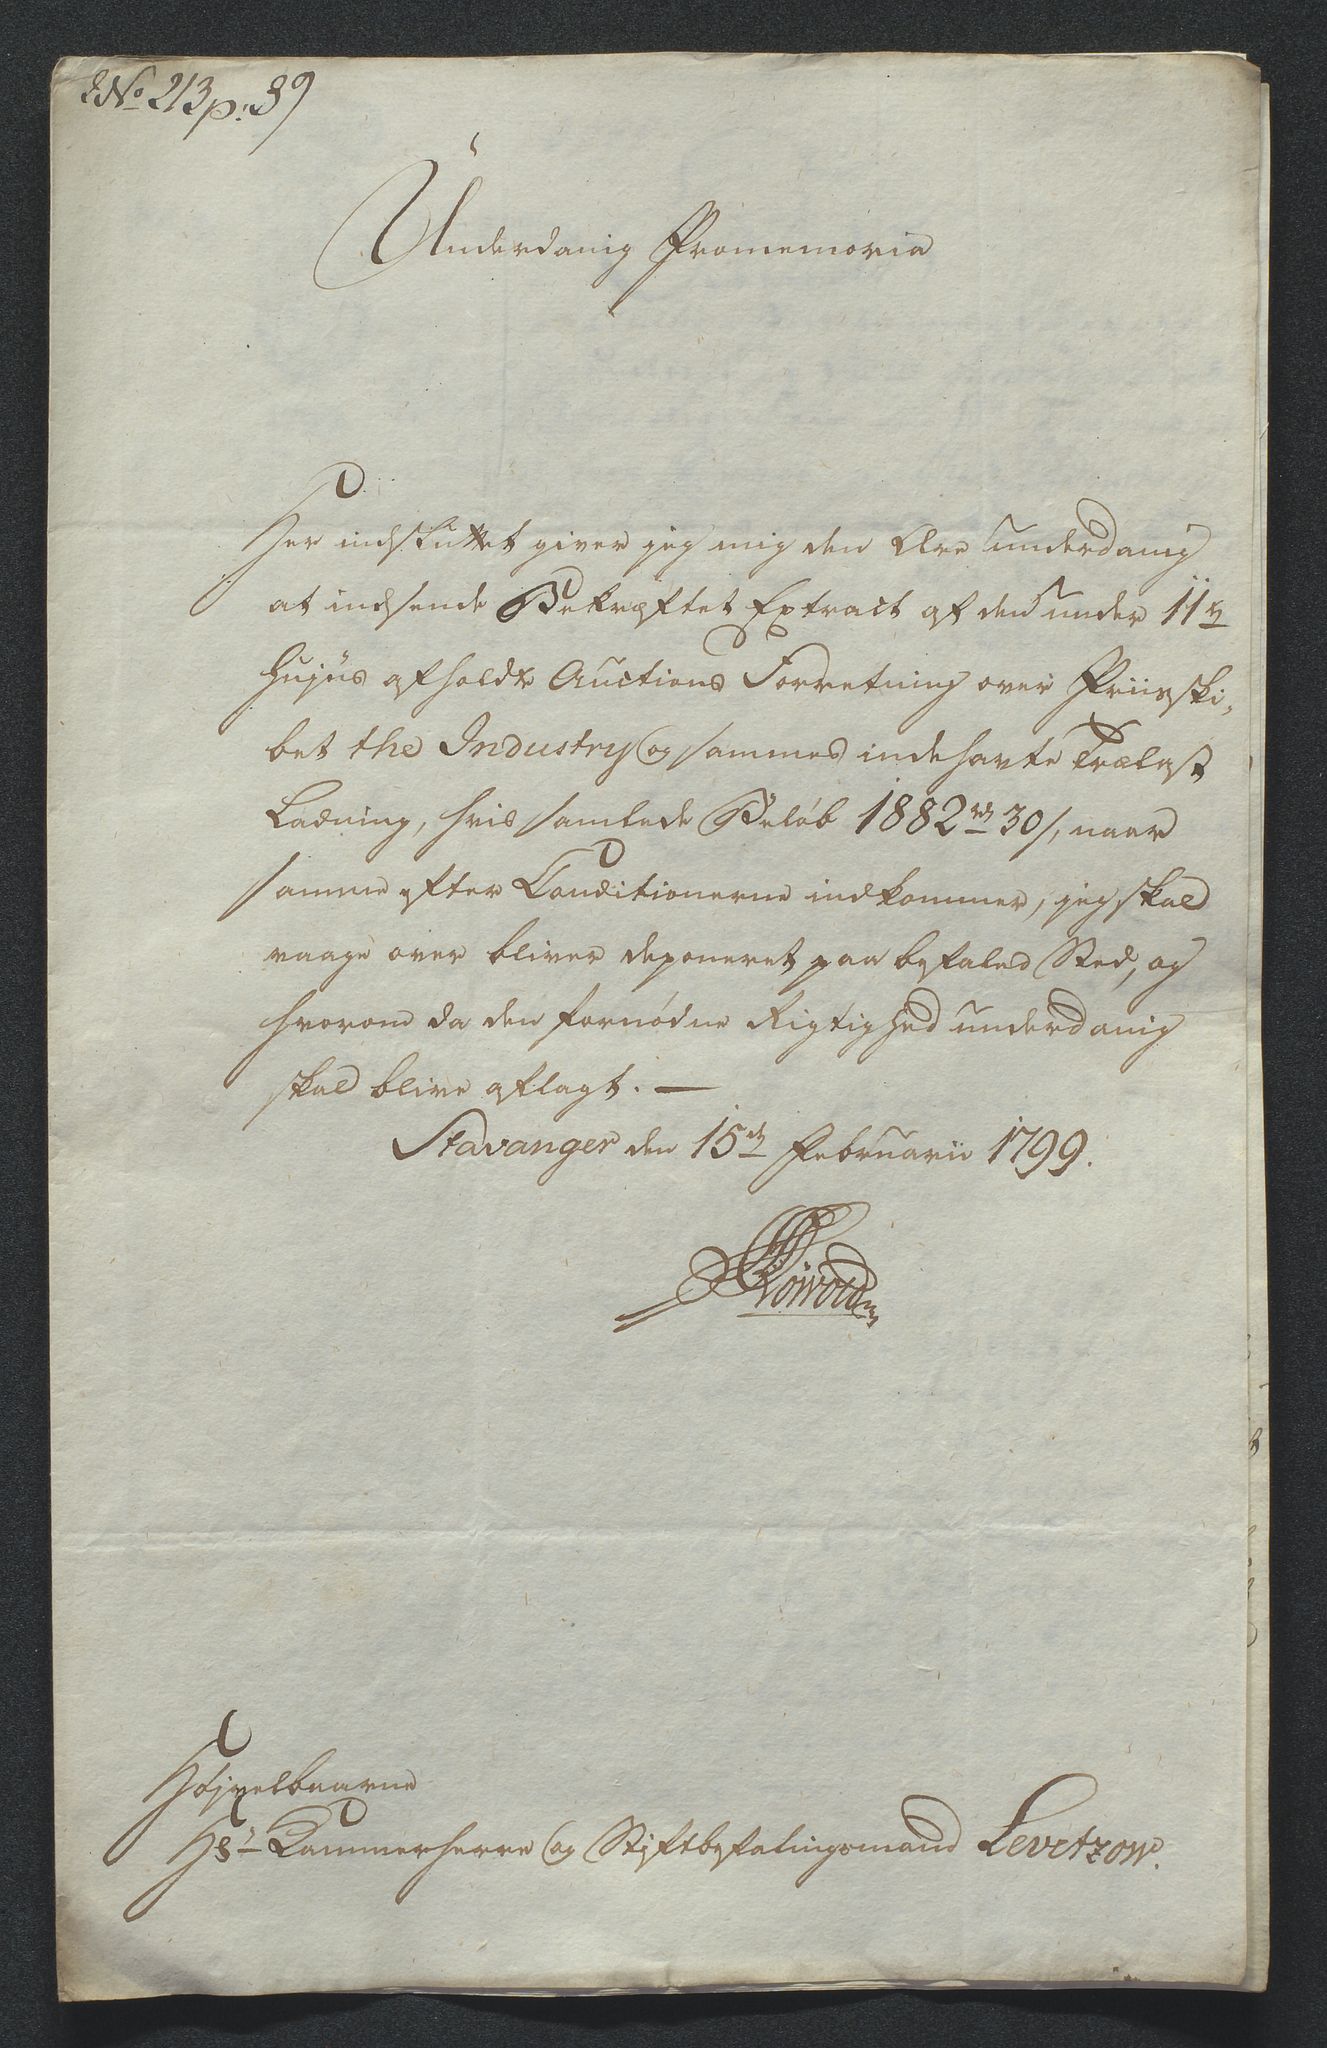 No 213 p: 89
Underdanig Promemoria
Her indsluttet giver jeg mig den Ære underdanig
at indsende Bekræftet Extract af den under 11te
hujus afholdte Auctions Forretning over Priisski-
bet the Industry og sammes indehavte Trælast
Ladning, hvis samlede Beløb 1882 rd 30 s, naar
samme efter Conditionerne indkommer, jeg skal
vaage over bliver deponeret paa befaled Sted, og
hvorom da den fornødne Rigtighed underdanig
skal blive aflagt. —
Stavanger den 15de Februarii 1799.
Løwold
Højvelbaarne
Hr Kammerherre og Stiftbefalingsmand Levetzow.